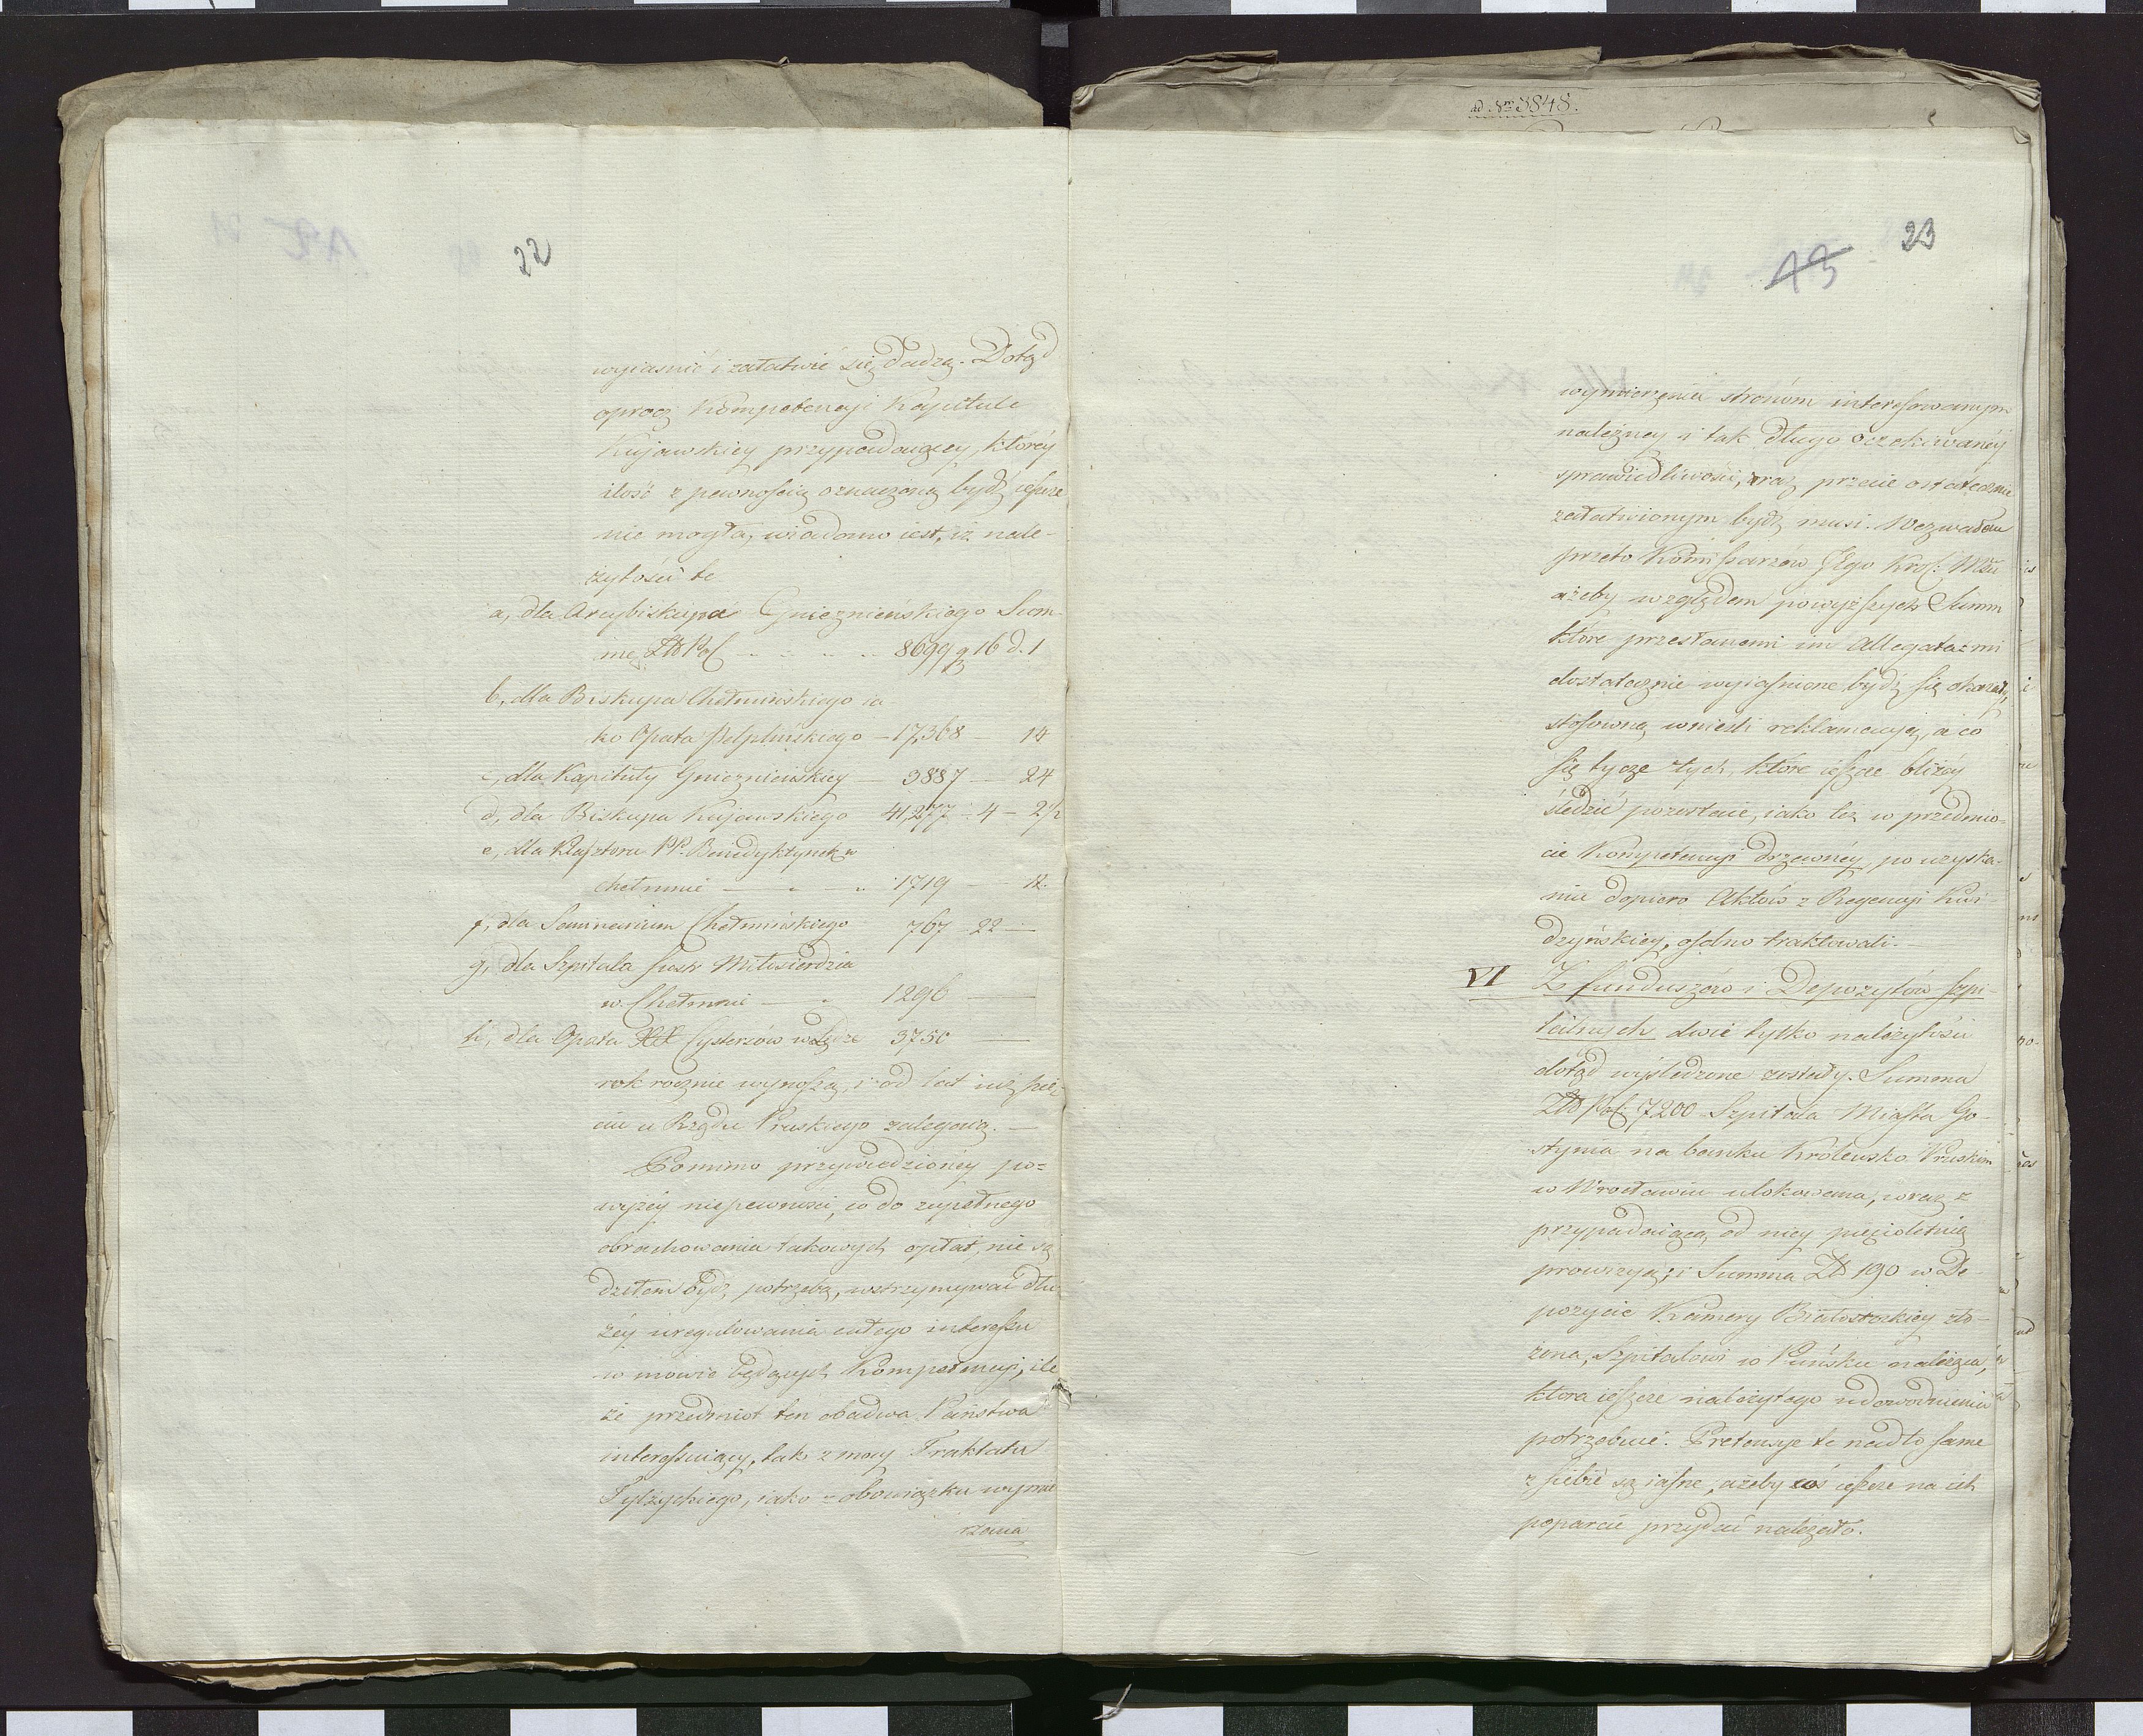 22
wyiasnić i załatwić się dadzą. Dotąd
oprocz Kompetencyi Kapitule
Kujawskiey przypadaiącey, którey
ilość z pewnością oznaczoną bydź ieszcze
nie mogła, wiadomo iest, iż nale-
żytości te
a, dla Arcybiskupa Gnieznieńskiego Sum-
mę Zł Pol 8699 g 16 d. 1
b, dla Biskupa Chełmińskiego ia
ko Opata Pelplińskiego — 17,368 — 14
c, dla Kapituły Gnieznieńskiey — 3887 — 24
d, dla Biskupa Kujawskiego 41,277 — 4 — 2½
e, dla Klasztoru PP. Benedyktynek w
Chełmnie — 1719 — 12.
f, dla Seminarium Chełmińskiego 767 — 22 —
g, dla Szpitala Siostr Miłosierdzia
w Chełmnie — 1296 —
h, dla Opata XX Cystersów w Lędzie 3750 —
rok rocznie wynoszą, i od lat iuż pię-
ciu u Rządu Pruskiego zalegaią. —
Pomimo przywiedzioney po=
wyżey niepewności, co do zupełnego
obrachowania takowych opłat, nie są
dziłem bydź potrzebą, wstrzymywać dłu
żey uregulowania całego interessu
w mowie będących Kompetencyi, ile
że przedmiot ten obadwa Państwa
interessuiący, tak z mocy Traktatu
Tylżyckiego, iako z obowiązku wymie
rzania
ad Nm 3848.
23
13
wymierzenia stronóm interesowanym
należney i tak długo oczekiwaney
sprawiedliwości, raz przecie ostatecznie
załatwionym bydź musi. Wezwałem
przeto Kommissarzów JEgo Krol: Mści
ażeby względem powyższych Summ
które przesłanemi im Allegatami
dostatecznie wyiasnione bydź się okazały,
stosowną wnieśli reklamacyją, a co
się tycze tych, które ieszcze bliżey
śledzić pozostaie, iako też w przedmio-
cie Kompetencyi drzewney po uzyska-
niu dopiero Aktów z Regencyi Kwi
dzyńskiey, osobno traktowali. —
VI Z funduszów i Depozytów szpi-
talnych dwie tylko należytości
dotąd wyśledzone zostały. Summa
Zł Pol: 7200 Szpitala Miasta Go-
stynia na banku Królewsko Pruskim
w Wrocławiu ulokowana, wraz z
przypadaiącą od niey pięcioletnią
prowizyą; i Summa Zł 190 w De-
pozycie Kamery Białostockiey zło-
żona, Szpitalowi w Puńsku należąca,
która ieszcze należytego udowodnienia
potrzebuie. Pretensye te nadto same
z siebie są iasne, ażeby coś ieszcze na ich
poparcie przydać należało.